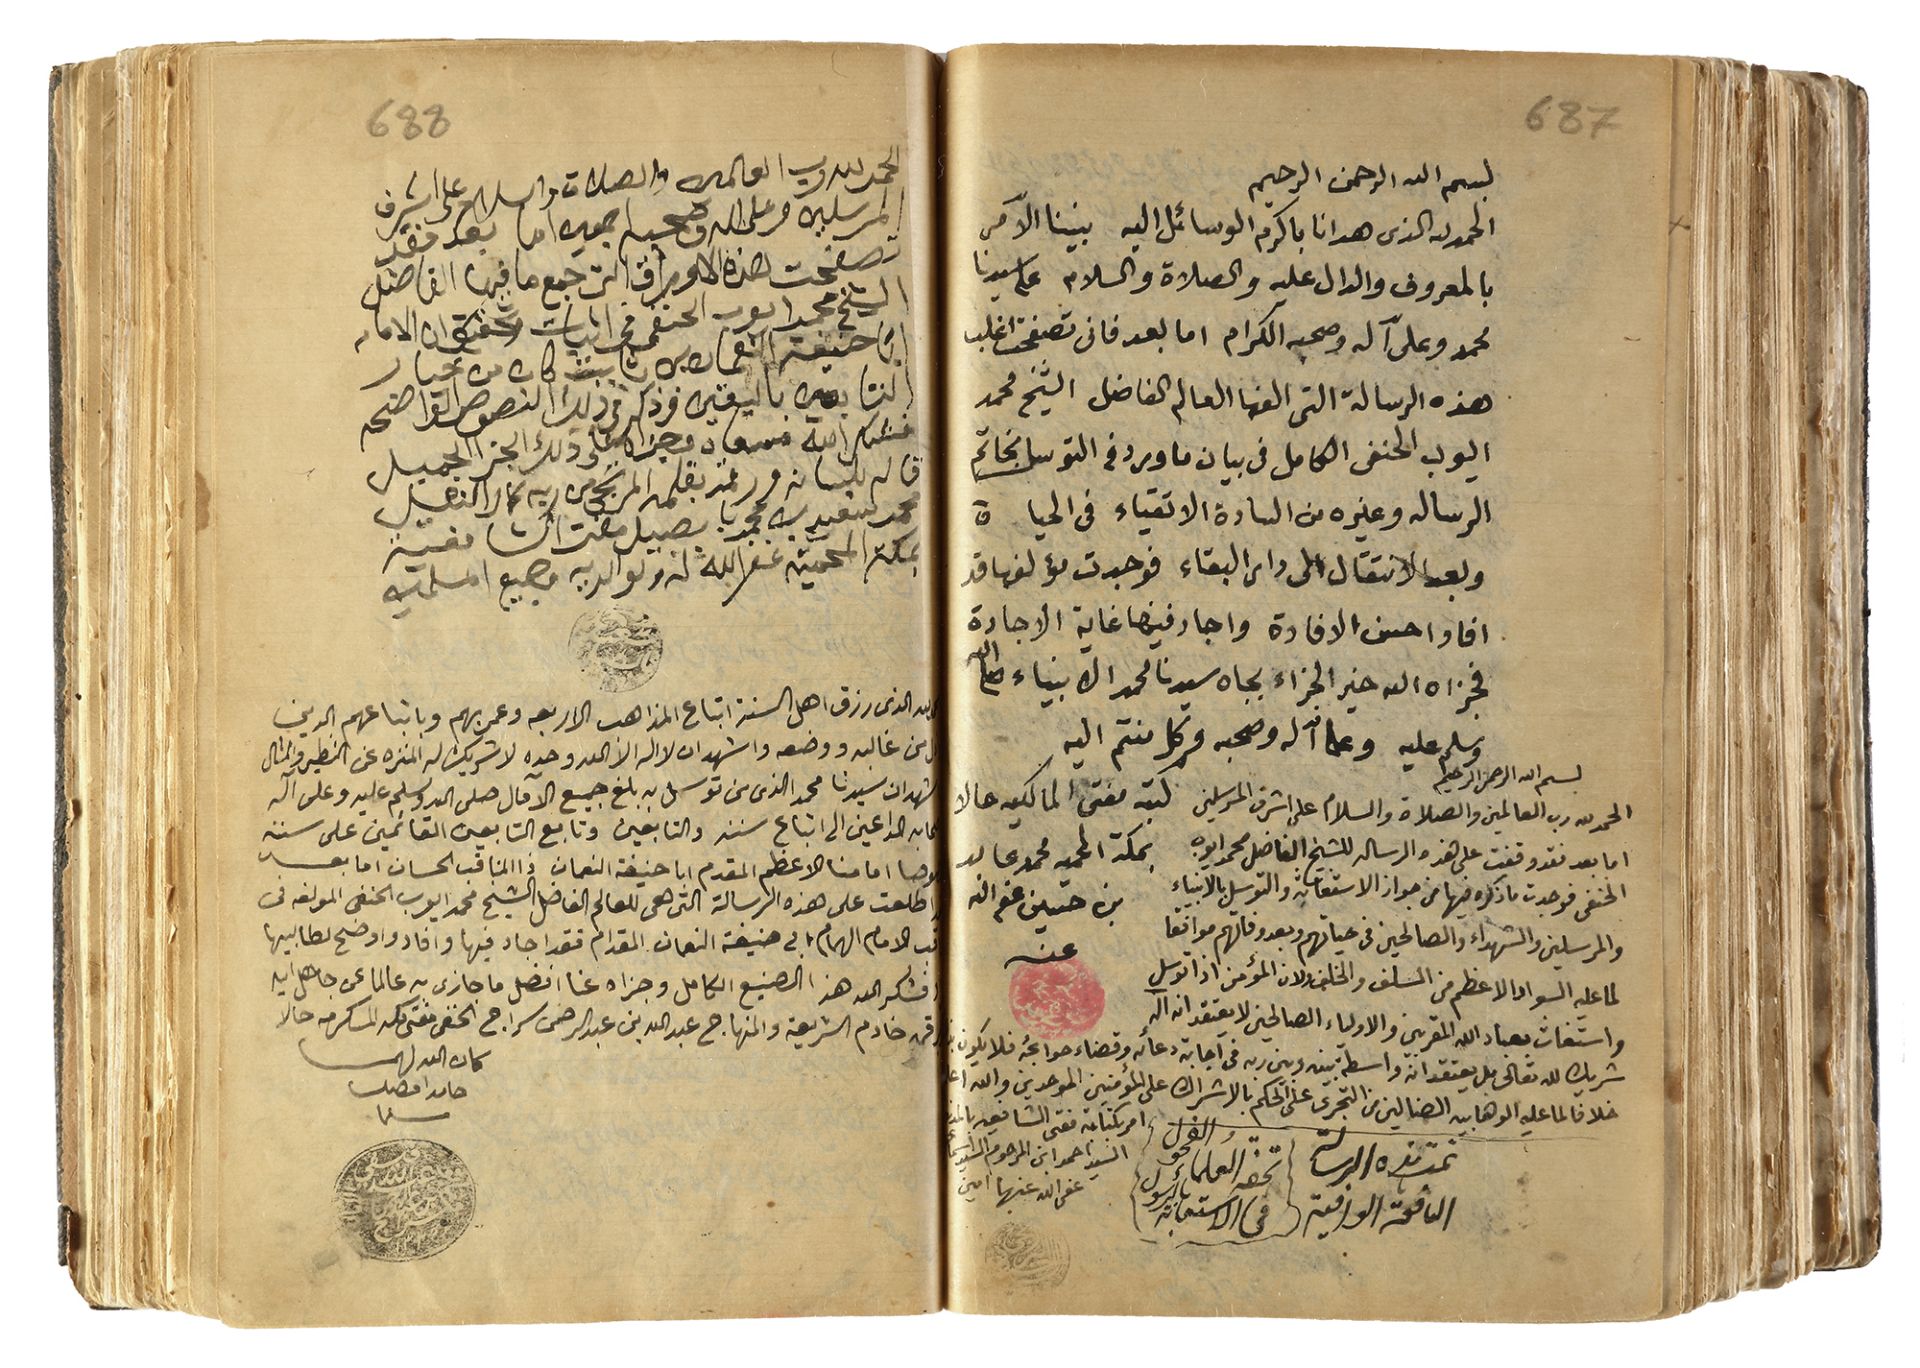 687
بسم الله الرحمن الرحيم
الحمد لله الذى هدانا باكرم الوسائل اليه نبينا الآمر
بالمعروف والدال عليه والصلاة والسلام على سيدنا
محمد وعلى آله وصحبه الكرام اما بعد فانى تصفحت اغلب
هذه الرسالة التى الفها العالم الفاضل الشيخ محمد
ايوب الحنفى الكامل فى بيان ما ورد فى التوسل بخاتم
الرساله وغيره من السادة الاتقياء فى الحياة
وبعد الانتقال الى دار البقاء فوجدت مؤلفها قد
افاد احسن الافادة واجاد فيها غاية الاجادة
فجزاه الله خير الجزاء بجاه سيدنا محمد الانبياء صلى الله
وسلم عليه وعلى آله وصحبه وكل منتم اليه
كتبه مفتى المالكيه حالا
بمكة المحميه محمد عابد
بن حسين عفى الله
عنه
بسم الله الرحمن الرحيم
الحمد لله رب العالمين والصلاة والسلام على اشرف المرسلين
اما بعد فقد وقفت على هذه الرساله للشيخ الفاضل محمد ايوب
الحنفى فوجدت ما ذكره فيها من جواز الاستغاثة والتوسل بالانبياء
والمرسلين والشهداء والصالحين فى حياتهم وبعد وفاتهم موافقا
لما عليه السواد الاعظم من السلف والخلف ولان المؤمن اذا توسل
واستغاث بعباد الله المقربين والاولياء الصالحين لا يعتقد انه اله
شريك لله تعالى بل يعتقد انه واسطة بينه وبين ربه فى اجابة دعائه وقضاء حوائجه فلا يكون
خلافا لما عليه الوهابيه الضالين من التجرى على الحكم بالاشراك على المؤمنين الموحدين والله
امر بكتابته مفتى الشافعيه
السيد احمد ابن المرحوم السيد
عفى الله عنهما امين
تمت هذه الرسالة
النافعة الوافية
تحفة العلماء الفحول
فى الاستغاثة بالرسول
688
الحمد لله رب العالمين والصلاة والسلام على اشرف
المرسلين وعلى اله وصحبه اجمعين اما بعد فقد
تصفحت هذه الاوراق التى جمع ما فيها الفاضل
الشيخ محمد ايوب الحنفى فى اثبات ان الامام
ابا حنيفة النعمان بن ثابت كان من خيار
التابعين باليقين وذكر فى ذلك النصوص الواضحة
فشكر الله مسعاه وجزاه على ذلك الجزا الجميل
قاله بلسانه ورقمه بقلمه المرتجى من ربه كمال النيل
محمد سعيد بن محمد بابصيل مفتى الشافعية
بمكة المحمية غفر الله له ولوالديه وجميع المسلمين
لله الذى رزق اهل السنة اتباع المذاهب الاربعه وعمر بهم وباتباعهم الدين
من غالبه ووضعه واشهد ان لا اله الا الله وحده لا شريك له المنزه عن النظير والمثال
اشهد ان سيدنا محمدا الذى من توسل به بلغ جميع الآمال صلى الله وسلم عليه وعلى آله
الداعين الى اتباع سننه والتابعين وتابع التابعين القائمين على سنته
امامنا الاعظم المقدم ابا حنيفة النعمان ذا المناقب الحسان اما بعد
اطلعت على هذه الرسالة التى هى للعالم الفاضل الشيخ محمد ايوب الحنفى المؤلفة فى
الامام الهمام ابى حنيفة النعمان المقدام فقد اجاد فيها وافاد واوضح لطالبيها
فشكر الله هذا الصنيع الكامل وجزاه عنا افضل ما جازى به عالما عن جاهل
رقمه خادم الشريعة والمنهاج عبدالله بن عبدالرحمن سراج الحنفى مفتى مكة المكرمه حالا
كان الله لهما
حامدا مصليا
مسلما